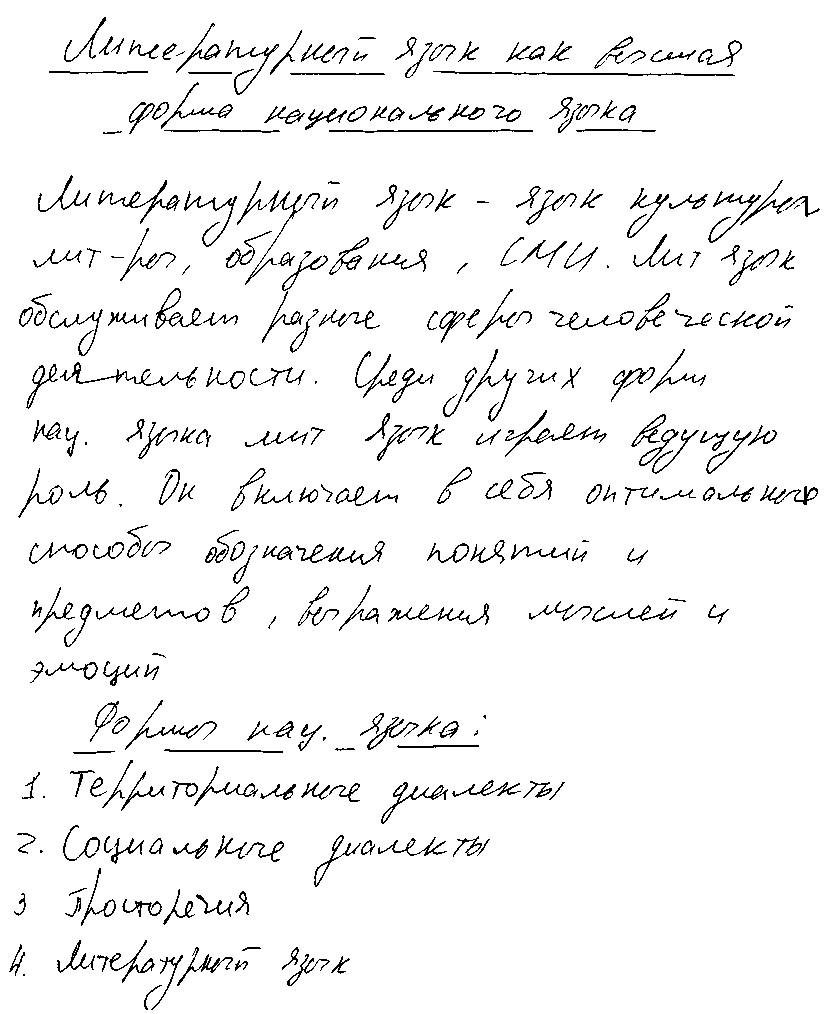 Литературный язык как высшая
форма национального языка
Литературный язык - язык культуры
лит-ры, образования, СМИ. Лит язык
обслуживает разные сферы человеческой
деятельности. Среди других форм
нац. языка лит язык играет ведущую
роль. Он включает в себя оптимальные
способы обозначения понятий и
предметов, выражения мыслей и
эмоций
Формы нац. языка:
1. Территориальные диалекты
2. Социальные диалекты
3 Просторечия
4. Литературный язык